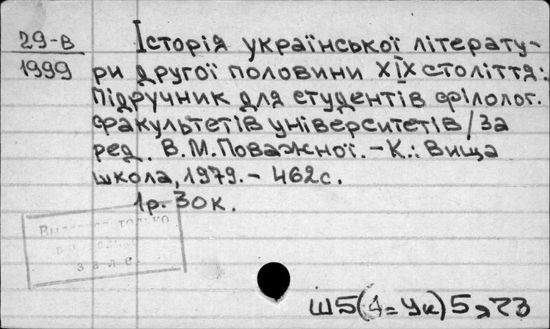 29-в
1999
Історія української літерату-
ри другої половини XIX століття:
Підручник для студентів філолог.
факультетів університетів / За
ред. В.М.Поважної. – К.: Вища
школа, 1979. – 462с.
1р. 30к.
только
зале
Ш5(4=Ук)5я73